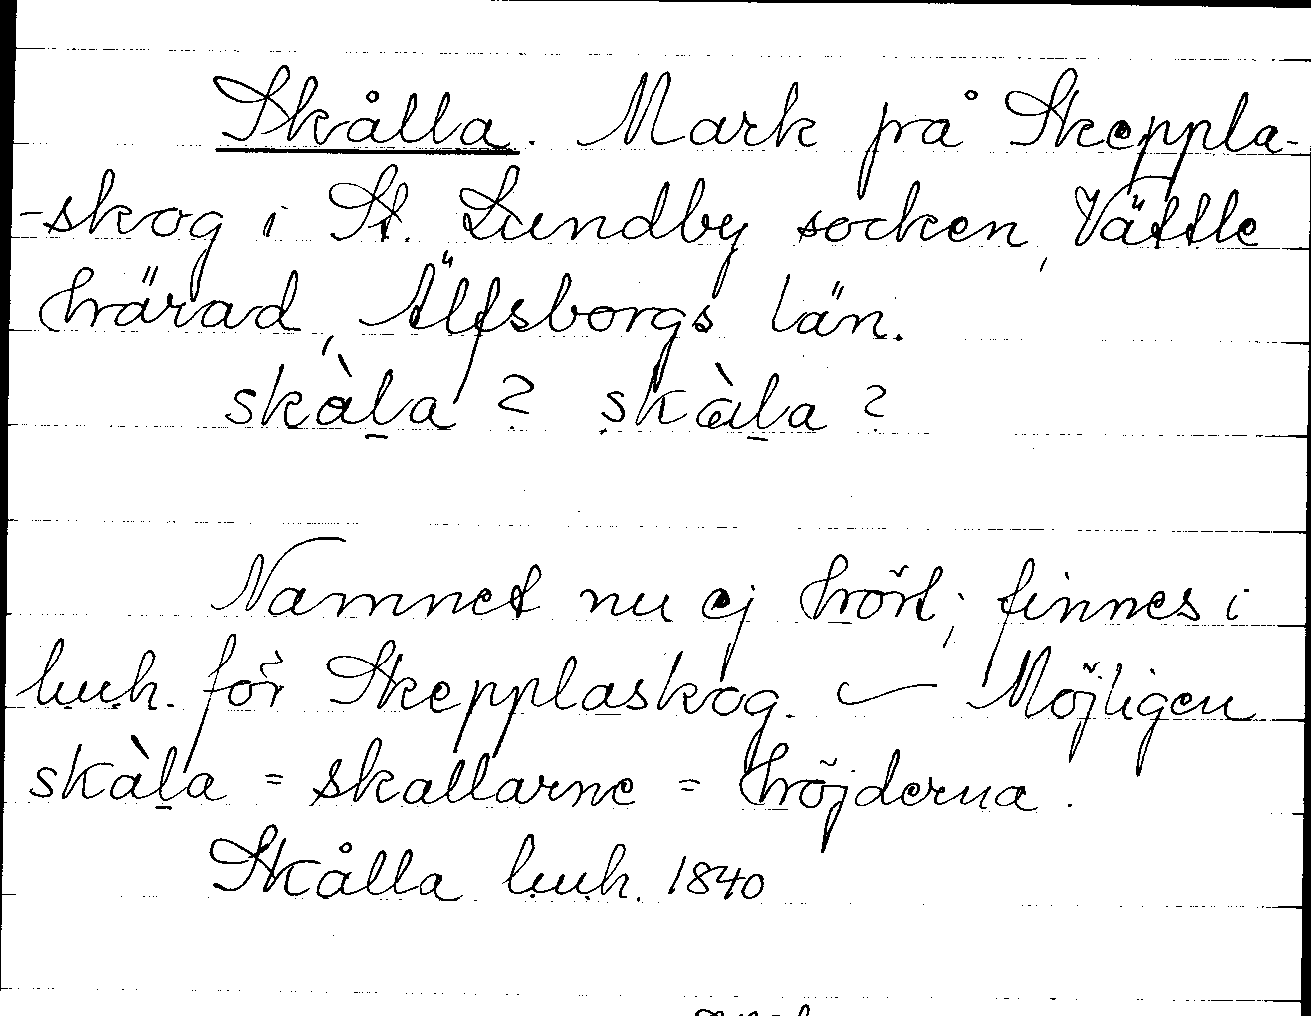 Skålla. Mark på Skeppla-
-skog i St. Lundby socken, Vättle
härad, Älfsborgs län.
skàl̲a ? skàl̲a ?
Namnet nu ej hört; finnes i
luh. för Skepplaskog. – Möjligen
skàl̲a = skallarne = höjderna.
Skålla luh. 1840